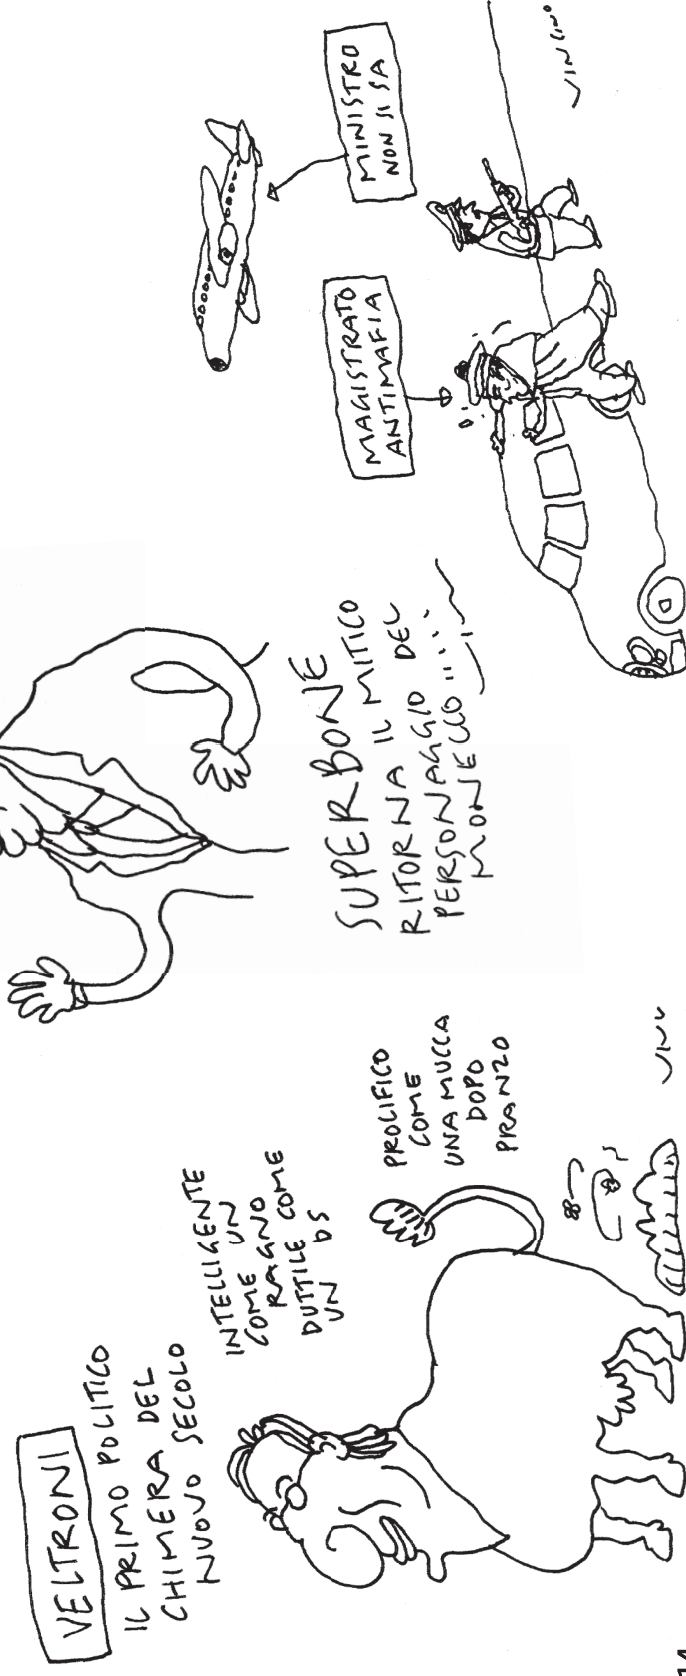 VELTRONI
IL PRIMO POLITICO
CHIMERA DEL
NUOVO SECOLO
INTELLIGENTE
COME UN
RAGNO
DUTTILE COME
UN DS
PROLIFICO
COME
UNA MUCCA
DOPO
PRANZO
VINV
SUPERBONE
RITORNA IL MITICO
PERSONAGGIO DEL
MONELLO.....
VIN
MAGISTRATO
ANTIMAFIA
MINISTRO
NON SI SA
VINCINO